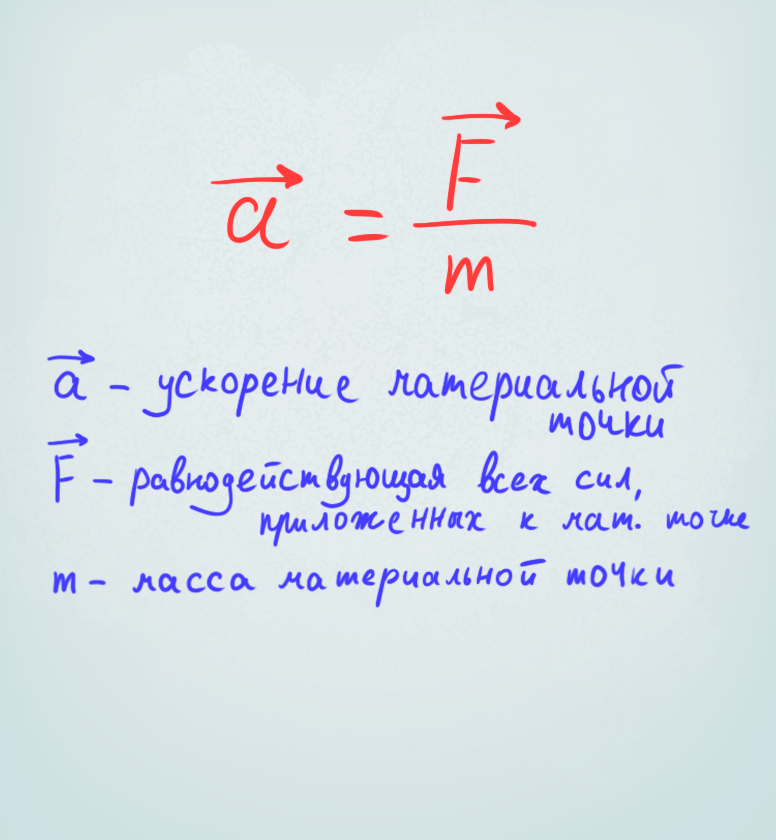 a⃗ = F⃗ / m
a⃗ – ускорение материальной
точки
F⃗ – равнодействующая всех сил,
приложенных к мат. точке
m – масса материальной точки